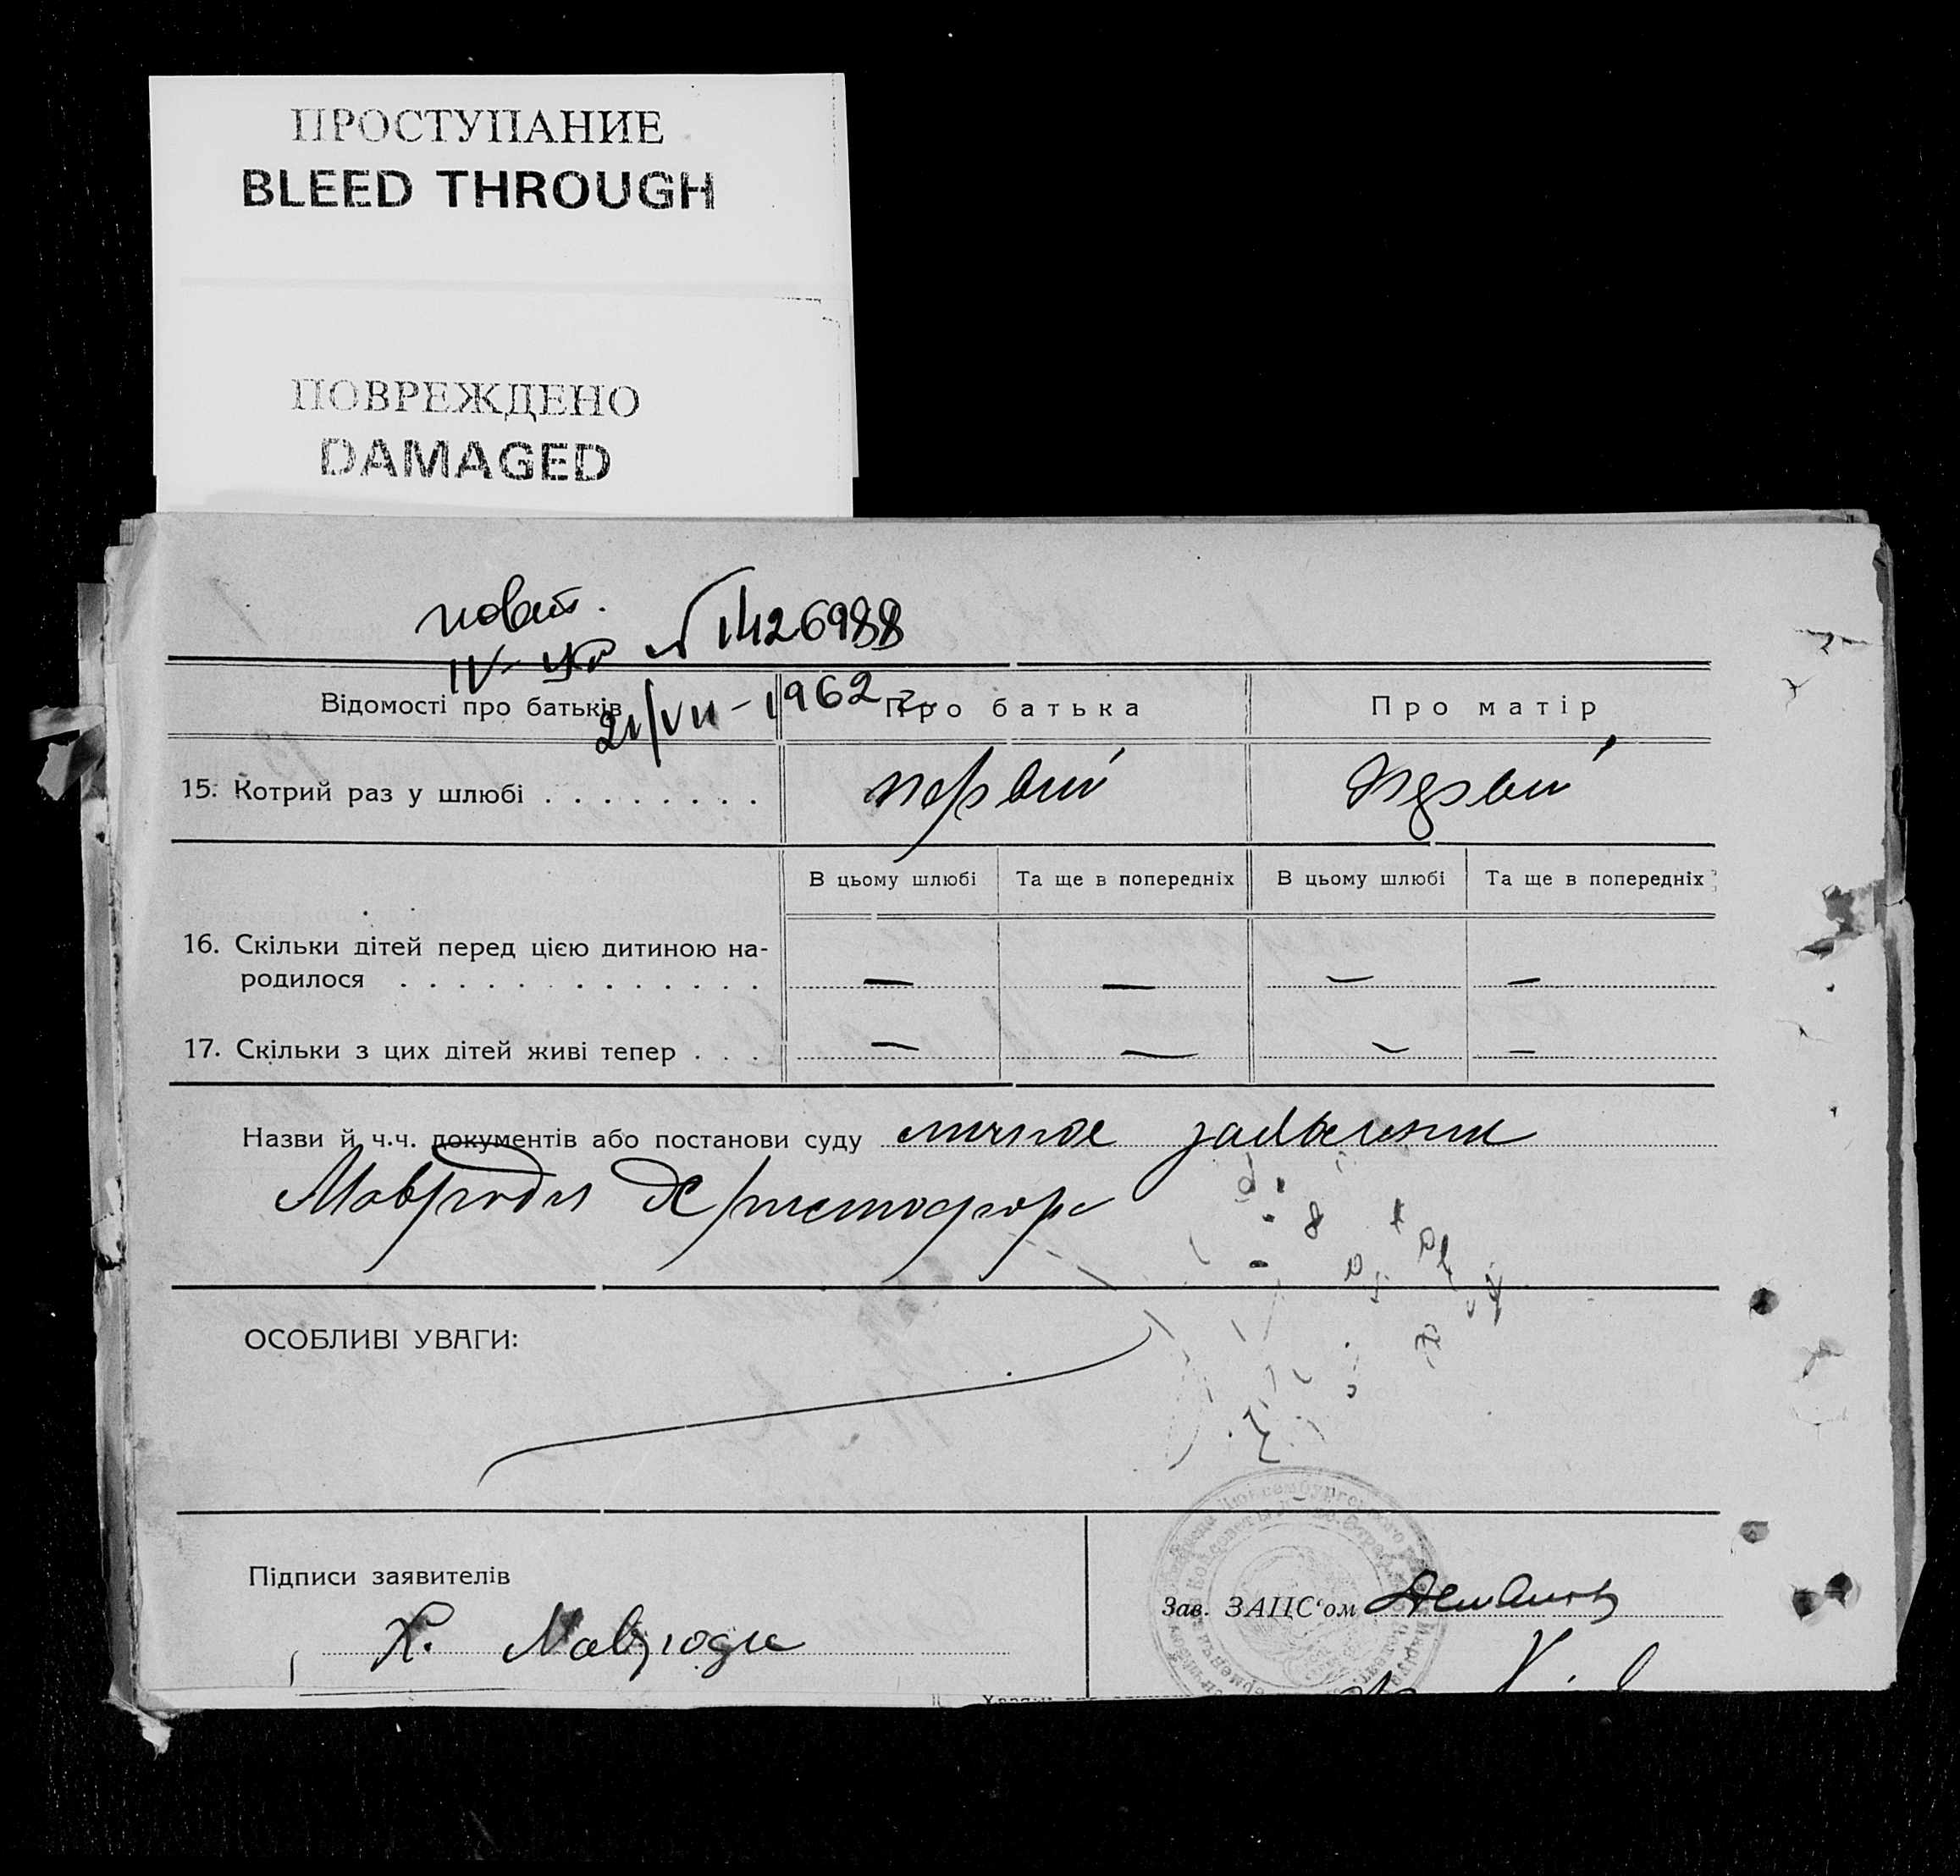 ПРОСТУПАНИЕ
BLEED THROUGH
ПОВРЕЖДЕНО
DAMAGED
повт.
IV-УР № 1426988
21/VII-1962 г.
Відомості про батьків
Про батька
Про матір
15. Котрий раз у шлюбі . . . . . . . .
первий
первий
В цьому шлюбі
Та ще в попередніх
В цьому шлюбі
Та ще в попередніх
16. Скільки дітей перед цією дитиною на-
родилося . . . . . . . . . . . . .
— — — —
17. Скільки з цих дітей живі тепер . . .
— — — —
Назви й ч.ч. документів або постанови суду личное заявление
Мавроди Христофора
ОСОБЛИВІ УВАГИ:
Підписи заявителів
Х. Мавроди
Зав. ЗАПС‘ом